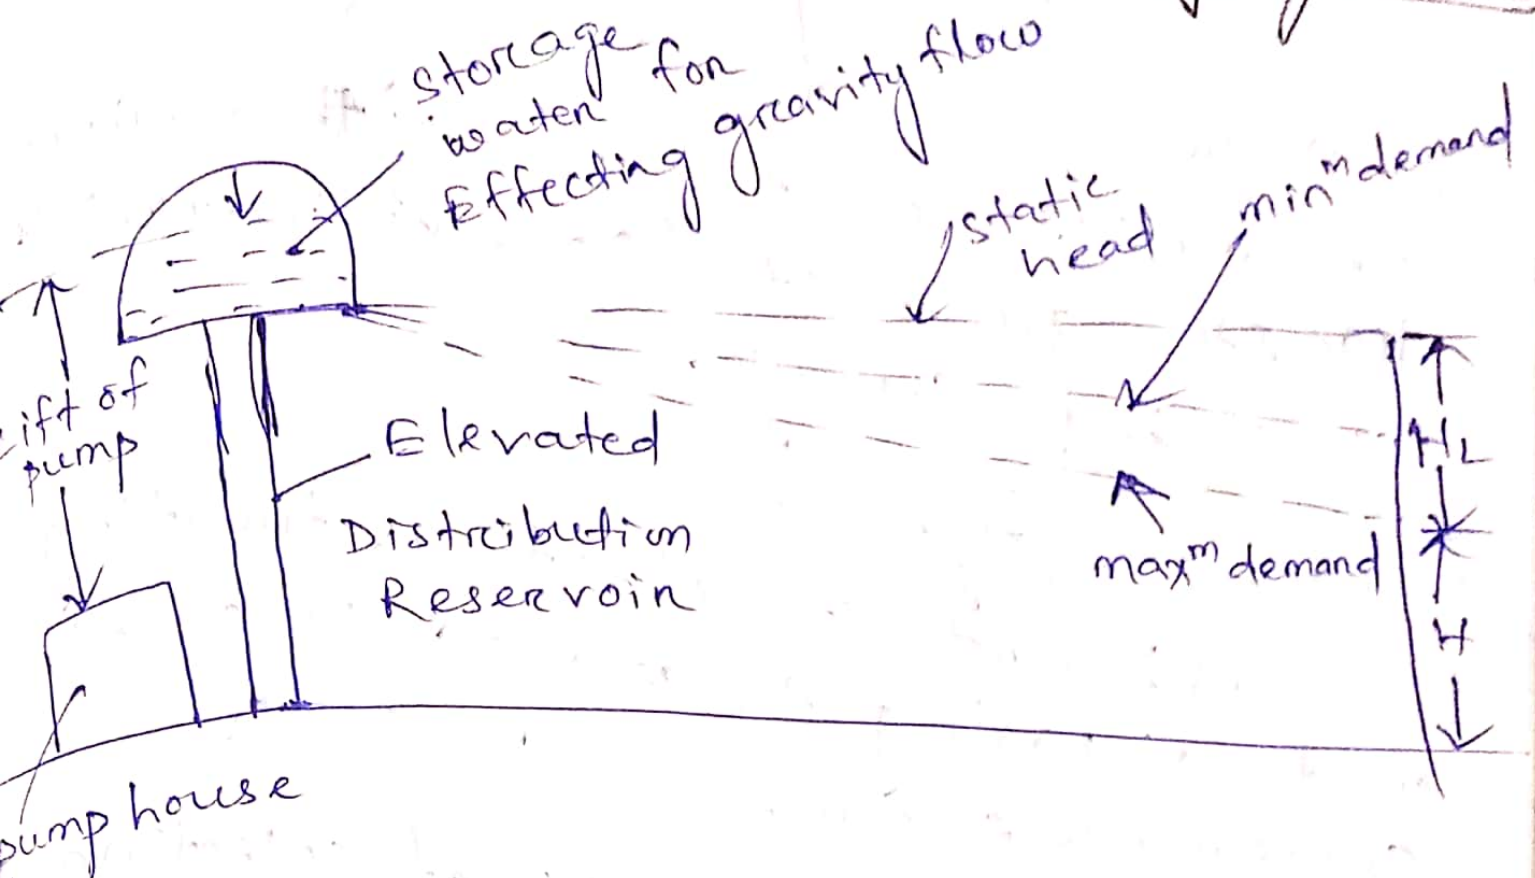 Storage
water for
Effecting gravity flow
static
head
minᵐ demand
Lift of
pump
Elevated
Distribution
Reservoir
HL
maxᵐ demand
H
pump house